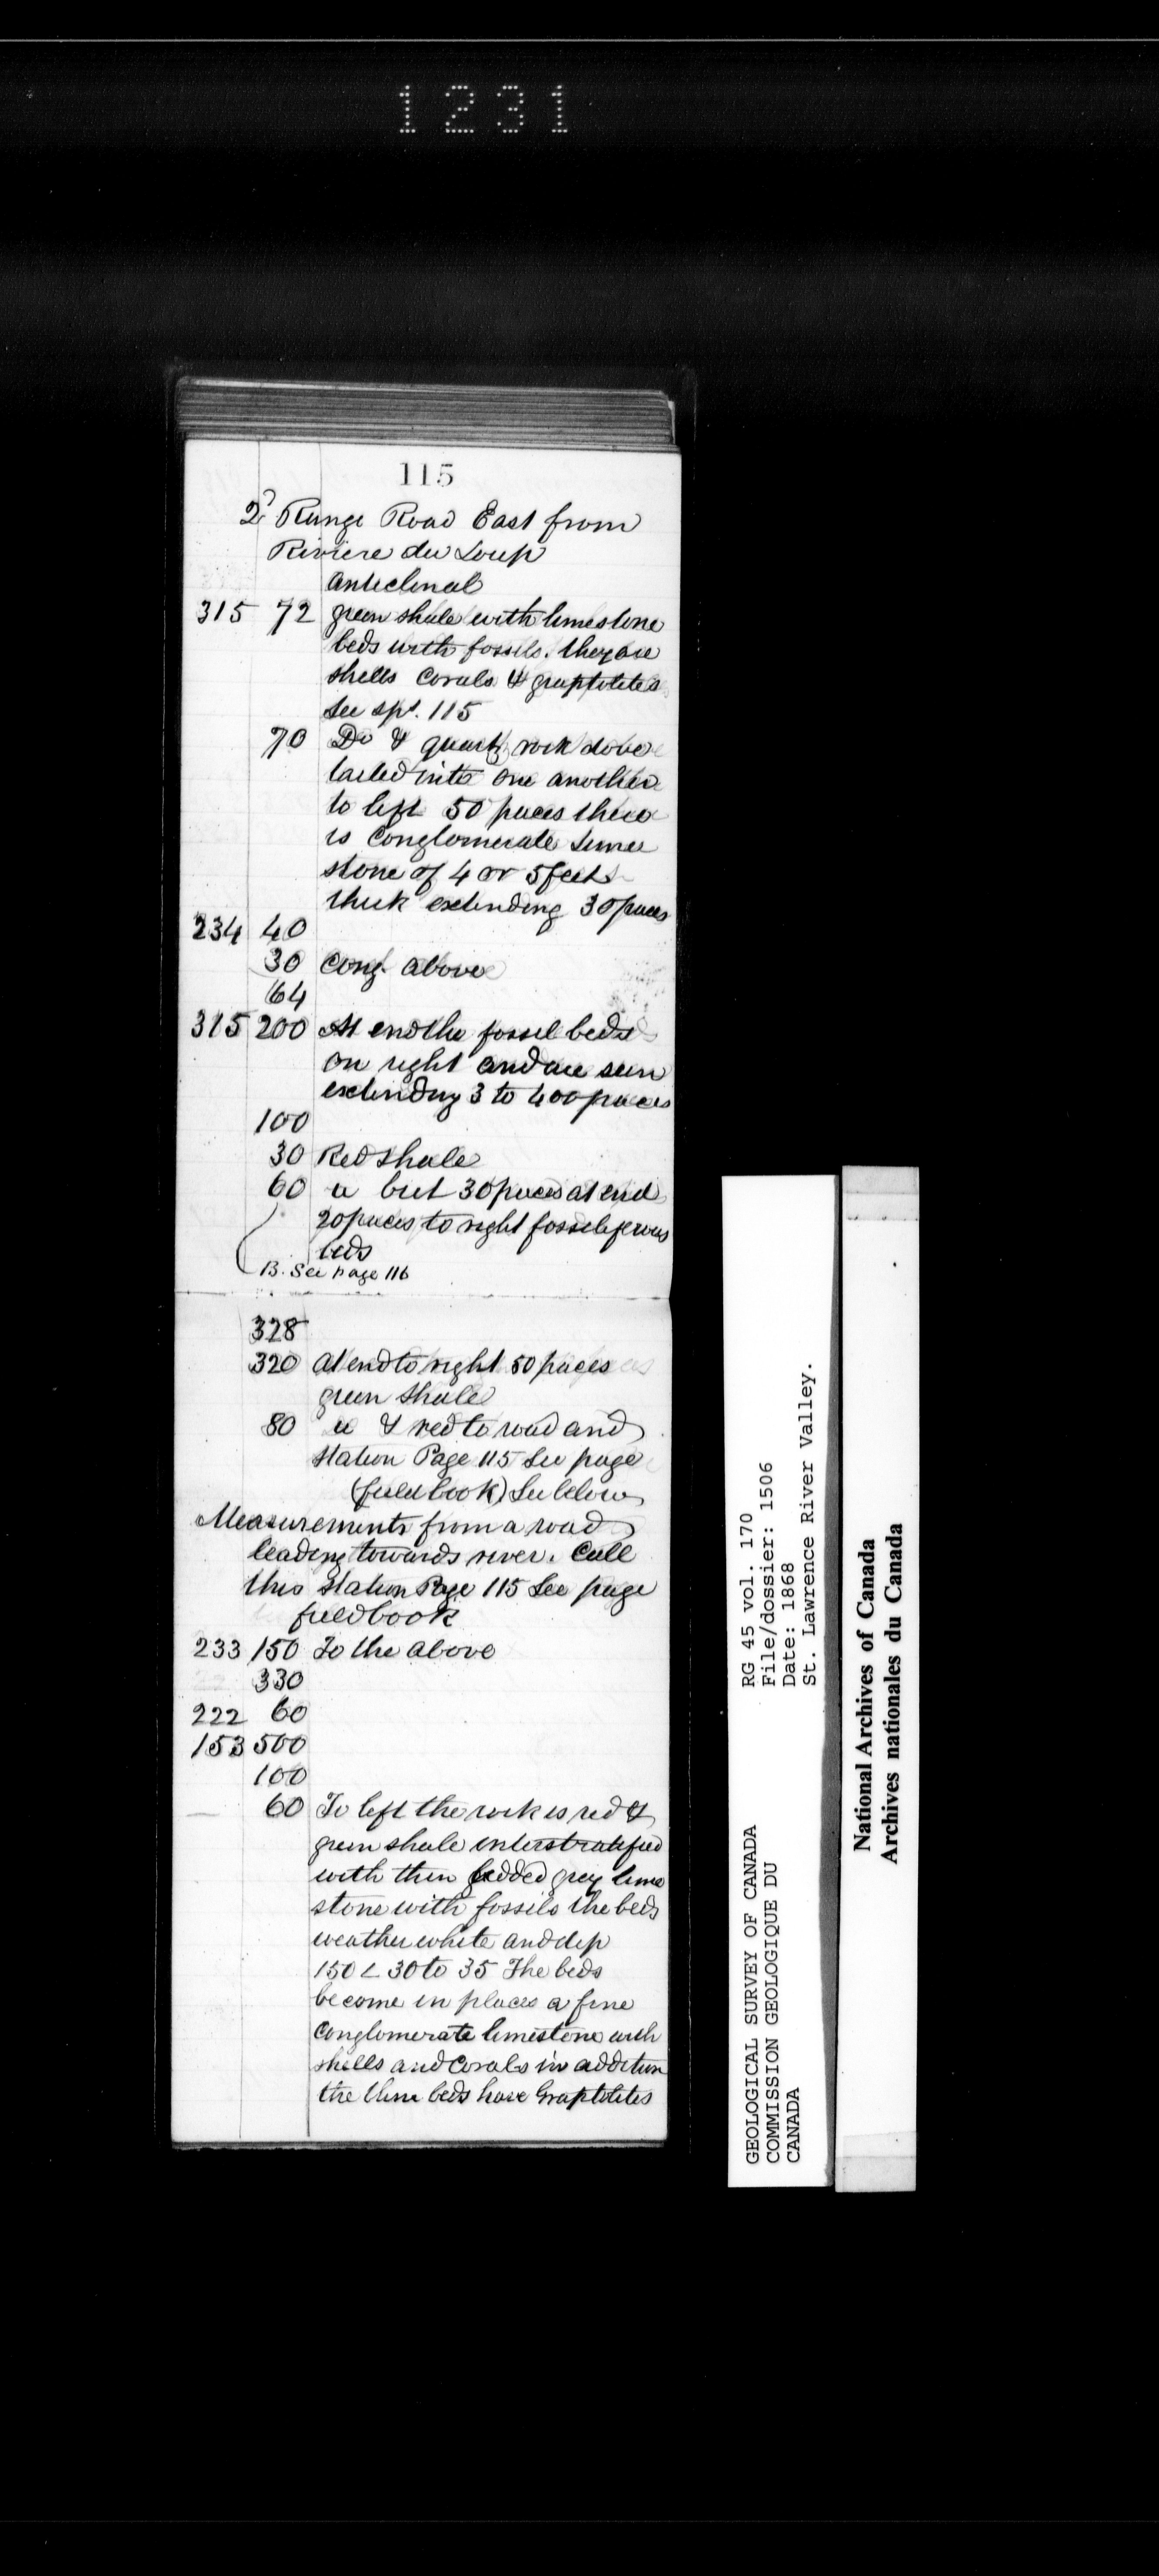 1231
115
2d Range Road East from
Riviere du Loup
anticlinal
315 72 green shale with limestone
beds with fossils. they are
shells corals & graptolites
See spt. 115
70 Do & quartz rock dove
tailed into one another
to left 50 paces there
is conglomerate lime
stone of 4 or 5 feet
thick extending 30 paces
234 40
30 Cong. above
64
315 200 At end the fossil beds
on right and are seen
extending 3 to 400 paces
100
30 Red shale
60 " but 30 paces at end
20 paces to right fossiliferous
beds
B. See page 116
328
320 at end to right 50 paces
green shale
80 " & red to road and
station Page 115 See page
(field book) See below
Measurements from a road
leading towards river. Call
this station Page 115 See page
field book
233 150 To the above
330
222 60
153 500
100
60 To left the rock is red &
green shale interstratified
with thin bedded grey lime
stone with fossils the beds
weather white and dip
150 < 30 to 35 The beds
become in places a fine
conglomerate limestone with
shells and corals in addition
the thin beds have Graptolites
GEOLOGICAL SURVEY OF CANADA RG 45 vol. 170
COMMISSION GEOLOGIQUE DU File/dossier: 1506
CANADA Date: 1868
St. Lawrence River Valley.
National Archives of Canada
Archives nationales du Canada